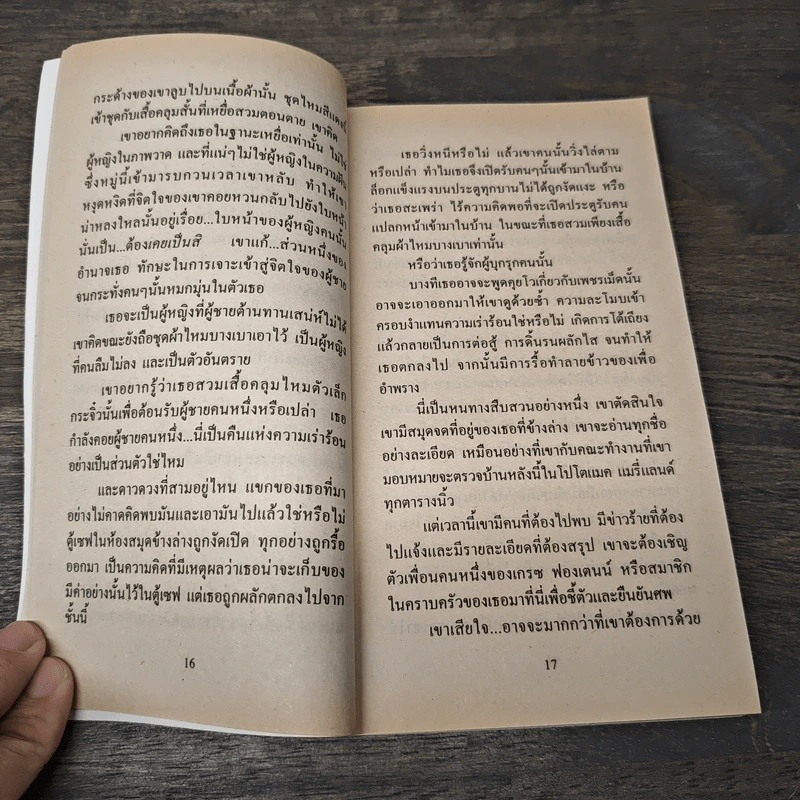 กระด้างของเขาลูบไปบนเนื้อผ้านั้น ชุดไหมสีแดงนี้
เข้าชุดกับเสื้อคลุมสั้นที่เหยื่อสวมตอนตาย เขาคิด
เขาอยากคิดถึงเธอในฐานะเหยื่อเท่านั้น ไม่ใช่
ผู้หญิงในภาพวาด และที่แน่ๆไม่ใช่ผู้หญิงในความฝัน
ซึ่งหมู่นี้เข้ามารบกวนเวลาเขาหลับ ทำให้เขา
หงุดหงิดที่จิตใจของเขาคอยหวนกลับไปยังใบหน้า
น่าหลงใหลนั้นอยู่เรื่อย...ใบหน้าของผู้หญิงคนนั้น
นั่นเป็น...ต้องเคยเป็นสิ เขาแก้...ส่วนหนึ่งของ
อำนาจเธอ ทักษะในการเจาะเข้าสู่จิตใจของผู้ชาย
จนกระทั่งคนๆนั้นหมกมุ่นในตัวเธอ
เธอจะเป็นผู้หญิงที่ผู้ชายต้านทานเสน่ห์ไม่ได้
เขาคิดขณะยังถือชุดผ้าไหมบางเบาเอาไว้ เป็นผู้หญิง
ที่คนลืมไม่ลง และเป็นตัวอันตราย
เขาอยากรู้ว่าเธอสวมเสื้อคลุมไหมตัวเล็ก
กระจิ๋วนั้นเพื่อต้อนรับผู้ชายคนหนึ่งหรือเปล่า เธอ
กำลังคอยผู้ชายคนหนึ่ง...นี่เป็นคืนแห่งความเร่าร้อน
อย่างเป็นส่วนตัวใช่ไหม
และดาวดวงที่สามอยู่ไหน แขกของเธอที่มา
อย่างไม่คาดคิดพบมันและเอามันไปแล้วใช่หรือไม่
ตู้เซฟในห้องสมุดข้างล่างถูกงัดเปิด ทุกอย่างถูกรื้อ
ออกมา เป็นความคิดที่มีเหตุผลว่าเธอน่าจะเก็บของ
มีค่าอย่างนั้นไว้ในตู้เซฟ แต่เธอถูกผลักตกลงไปจาก
ชั้นนี้
16
เธอวิ่งหนีหรือไม่ แล้วเขาคนนั้นวิ่งไล่ตาม
หรือเปล่า ทำไมเธอจึงเปิดรับคนๆนั้นเข้ามาในบ้าน
ล็อกแข็งแรงบนประตูทุกบานไม่ได้ถูกงัดแงะ หรือ
ว่าเธอสะเพร่า ไร้ความคิดพอที่จะเปิดประตูรับคน
แปลกหน้าเข้ามาในบ้าน ในขณะที่เธอสวมเพียงเสื้อ
คลุมผ้าไหมบางเบาเท่านั้น
หรือว่าเธอรู้จักผู้บุกรุกคนนั้น
บางทีเธออาจจะพูดคุยโวเกี่ยวกับเพชรเม็ดนั้น
อาจจะเอาออกมาให้เขาดูด้วยซ้ำ ความละโมบเข้า
ครอบงำแทนความเร่าร้อนใช่หรือไม่ เกิดการโต้เถียง
แล้วกลายเป็นการต่อสู้ การดิ้นรนผลักไส จนทำให้
เธอตกลงไป จากนั้นมีการรื้อทำลายข้าวของเพื่อ
อำพราง
นี่เป็นหนทางสืบสวนอย่างหนึ่ง เขาตัดสินใจ
เขามีสมุดจดที่อยู่ของเธอที่ข้างล่าง เขาจะอ่านทุกชื่อ
อย่างละเอียด เหมือนอย่างที่เขากับคณะทำงานที่เขา
มอบหมายจะตรวจบ้านหลังนี้ในโปโตแมค แมรี่แลนด์
ทุกตารางนิ้ว
แต่เวลานี้เขามีคนที่ต้องไปพบ มีข่าวร้ายที่ต้อง
ไปแจ้งและมีรายละเอียดที่ต้องสรุป เขาจะต้องเชิญ
ตัวเพื่อนคนหนึ่งของเกรซ ฟองเตนน์ หรือสมาชิก
ในคราบครัวของเธอมาที่นี่เพื่อชี้ตัวและยืนยันศพ
เขาเสียใจ...อาจจะมากกว่าที่เขาต้องการด้วย
17